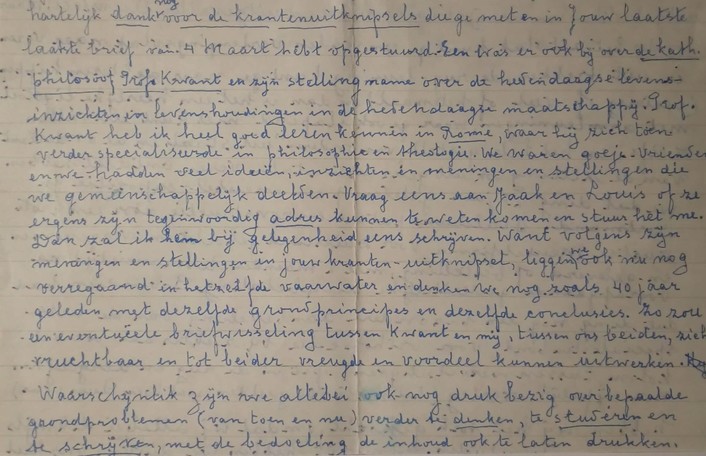 hartelijk dank nog voor de krantenuitknipsels die ge met en in Jouw laatste
laatste brief van 4 Maart hebt opgestuurd. Een was er ook bij over de kath.
philosoof Prof. Kwant en zijn stellingname over de hedendaagse levens-
inzichten en levenshoudingen in de hedendaagse maatschappij. Prof.
Kwant heb ik heel goed leren kennen in Rome, waar hij zich toen
verder specialiseerde in philosophie en theologie. We waren goeje vrienden
en we hadden veel ideeën, inzichten en meningen en stellingen die
we gemeenschappelijk deelden. Vraag eens aan Sjaak en Louis of ze
ergens zijn tegenwoordig adres kunnen te weten komen en stuur het me.
Dan zal ik hem bij gelegenheid eens schrijven. Want volgens zijn
meningen en stellingen in jouw kranten-uitknipsel, liggen we ook nu nog
verregaand in hetzelfde vaarwater en denken we nog zoals 40 jaar
geleden met dezelfde grondprincipes en dezelfde conclusies. Zo zou
een eventuéele briefwisseling tussen Kwant en mij, tussen ons beiden, zich
vruchtbaar en tot beider vreugde en voordeel kunnen uitwerken.
Waarschijnlik zijn we allebei ook nog druk bezig over bepaalde
grondproblemen (van toen en nu) verder te denken, te studéren en
te schrijven, met de bedoeling de inhoud ook te laten drukken.